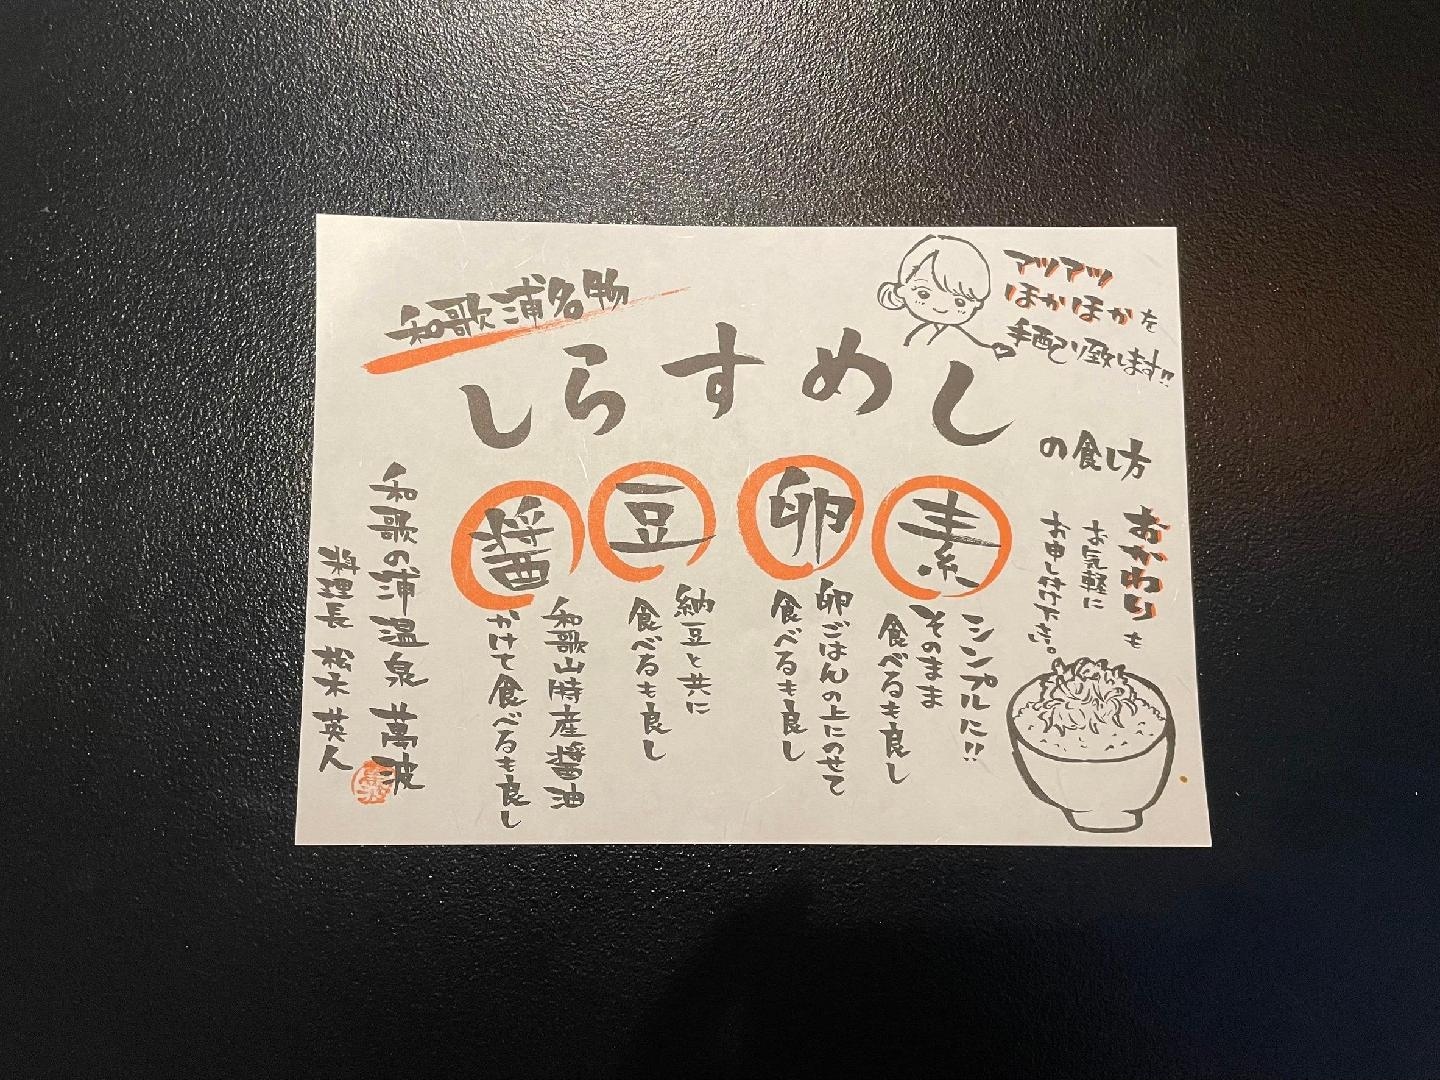 和歌浦名物
しらすめし
の食し方
アツアツ
ほかほかを
手配り致します!!
おかわりも
お気軽に
お申し付け下さい。
素
シンプルに!!
そのまま
食べるも良し
卵
卵ごはんの上にのせて
食べるも良し
豆
納豆と共に
食べるも良し
醤
和歌山特産醤油
かけて食べるも良し
和歌の浦温泉 萬波
料理長 松本 英人